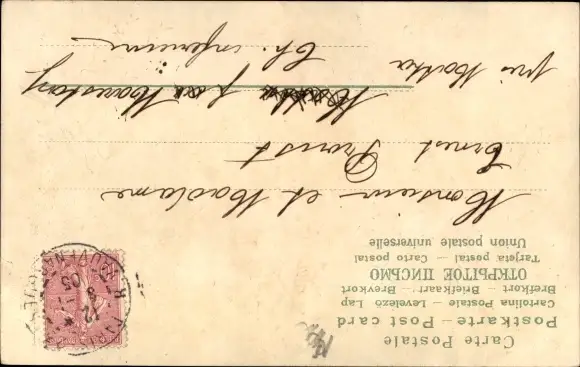 Carte Postale
Postkarte - Post card
Cartolina Postale - Levelező Lap
Brefkort - Briefkaart - Brevkort
ОТКРЫТОЕ ПИСЬМО
Tarjeta postal - Carto postal
Union postale universelle
Monsieur et Madame
Ernest Proust
près Matha
Ch. inférieure
12
05